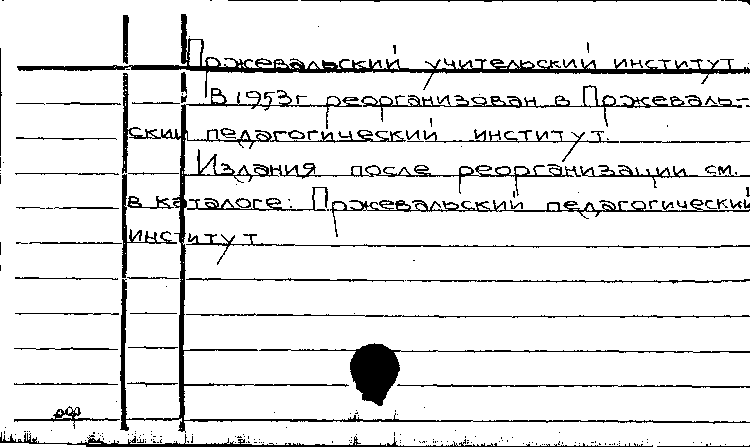 Пржевальский учительский институт.
В 1953г реорганизован в Пржеваль-
ский педагогический институт.
Издания после реорганизации см.
в каталоге: Пржевальский педагогический
институт